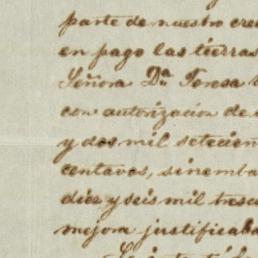 parte de nuestro cre
en pago las tierras
Señora Dª Teresa
con autorizacion de
y dos mil setecien
centavos, sinemba
diez y seis mil tresc
mejora justificaba